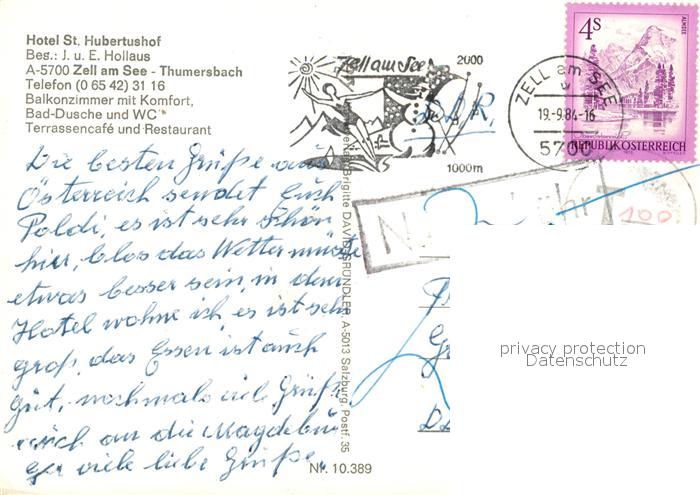 Hotel St. Hubertushof
Bes.: J. u. E. Hollaus
A-5700 Zell am See - Thumersbach
Telefon (0 65 42) 31 16
Balkonzimmer mit Komfort,
Bad-Dusche und WC
Terrassencafé und Restaurant
Die besten Grüße aus
Österreich sendet Euch
Poldi, es ist sehr schön
hier, blos das Wetter müsste
etwas besser sein, in dem
Hotel wohne ich, es ist sehr
groß, das Essen ist auch
gut, nochmals viele Grüße
auch an die Magdebur
ger viele liebe Grüße.
Nr. 10.389
Brigitte DAVID-GRÜNDLER, A-5013 Salzburg, Postf. 35
Zell am See
2000
1000m
ZELL am SEE
19.-9.84-16
5700
4S
ALMSEE
REPUBLIK ÖSTERREICH
T
100
privacy protection
Datenschutz